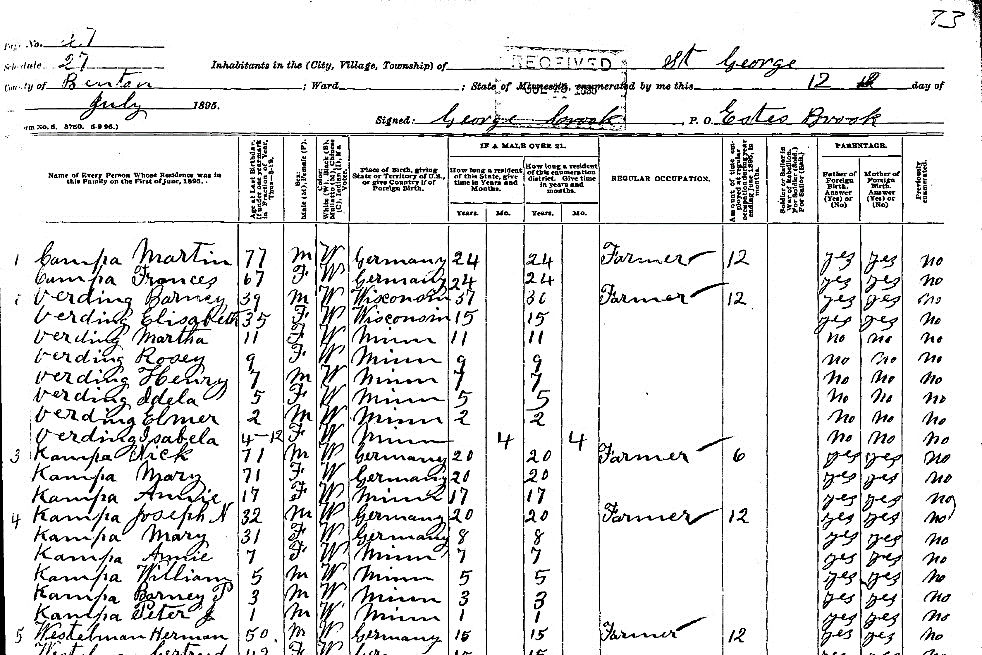 73
Page No. 27
Schedule 27 Inhabitants in the (City, Village, Township) of St George
RECEIVED
County of Benton ; Ward ; State of Minnesota, enumerated by me this 12 day of
July 1895.
Signed: George Crook P. O. Estes Brook
Name of Every Person Whose Residence was in this Family on the First of June, 1895. Age at Last Birthday. Sex. Male (M), Female (F). Place of Birth, giving State or Territory of U.S., or give Country if of Foreign Birth. IF A MALE OVER 21. How long a resident of this State, give time in Years and Months. Years. Mo. How long a resident of this enumeration district. Give time in years and months. Years. Mo. REGULAR OCCUPATION. PARENTAGE. Father of Foreign Birth. Answer (Yes) or (No) Mother of Foreign Birth. Answer (Yes) or (No) Previously enumerated.
1 Campa Martin 77 M W Germany 24 24 Farmer 12 yes yes no
Campa Frances 67 F W Germany 24 24 yes yes no
Verding Barney 39 M W Wisconsin 37 36 Farmer 12 yes yes no
Verding Elisabeth 35 F W Wisconsin 15 15 yes yes no
Verding Martha 11 F W Minn 11 11 no no no
Verding Rosey 9 F W Minn 9 9 no no no
Verding Henry 7 M W Minn 7 7 no no no
Verding Idela 5 F W Minn 5 5 no no no
Verding Elmer 2 M W Minn 2 2 no no no
Verding Isabela 4-12 F W Minn 4 4 no no no
3 Kampa Nick 71 M W Germany 20 20 Farmer 6 yes yes no
Kampa Mary 71 F W Germany 20 20 yes yes no
Kampa Annie 17 F W Minn 17 17 yes yes no
4 Kampa Joseph N 32 M W Germany 20 20 Farmer 12 yes yes no
Kampa Mary 31 F W Germany 8 8 yes yes no
Kampa Annie 7 F W Minn 7 7 yes yes no
Kampa William 5 M W Minn 5 5 yes yes no
Kampa Barney P 3 M W Minn 3 3 yes yes no
Kampa Peter J 1 M W Minn 1 1 yes yes no
5 Westelman Herman 50 M W Germany 15 15 Farmer 12 yes yes no